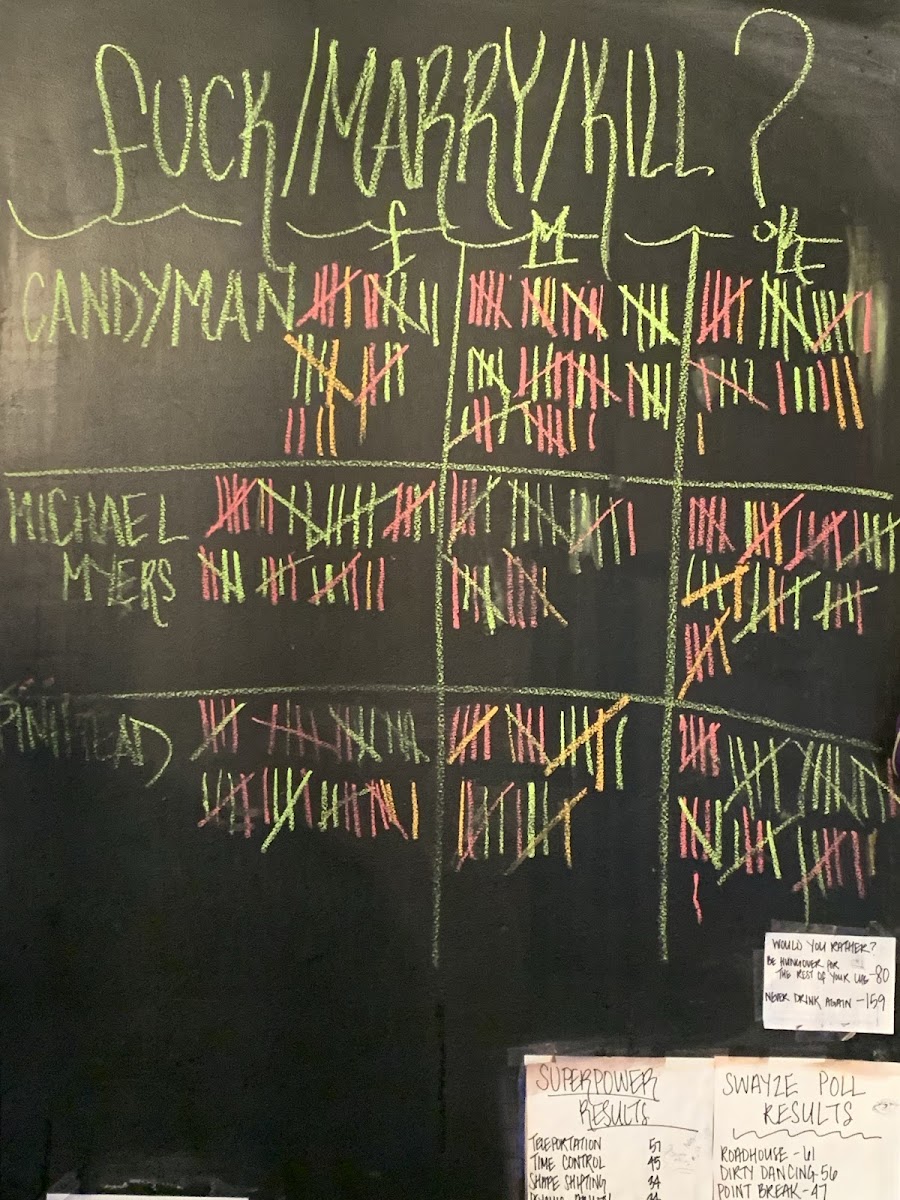 FUCK/MARRY/KILL?
F M K
CANDYMAN
MICHAEL
MYERS
PINHEAD
WOULD YOU RATHER?
BE HUNGOVER FOR
THE REST OF YOUR LIFE -80
NEVER DRINK AGAIN -159
SUPERPOWER
RESULTS
TELEPORTATION 57
TIME CONTROL 45
SHAPE SHIFTING 34
SWAYZE POLL
RESULTS
ROADHOUSE -61
DIRTY DANCING-56
POINT BREAK -47